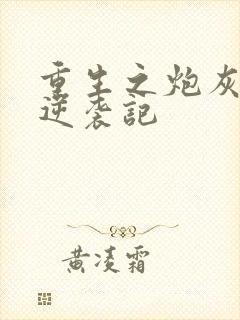 重生之炮灰
逆袭记
黄凌霜